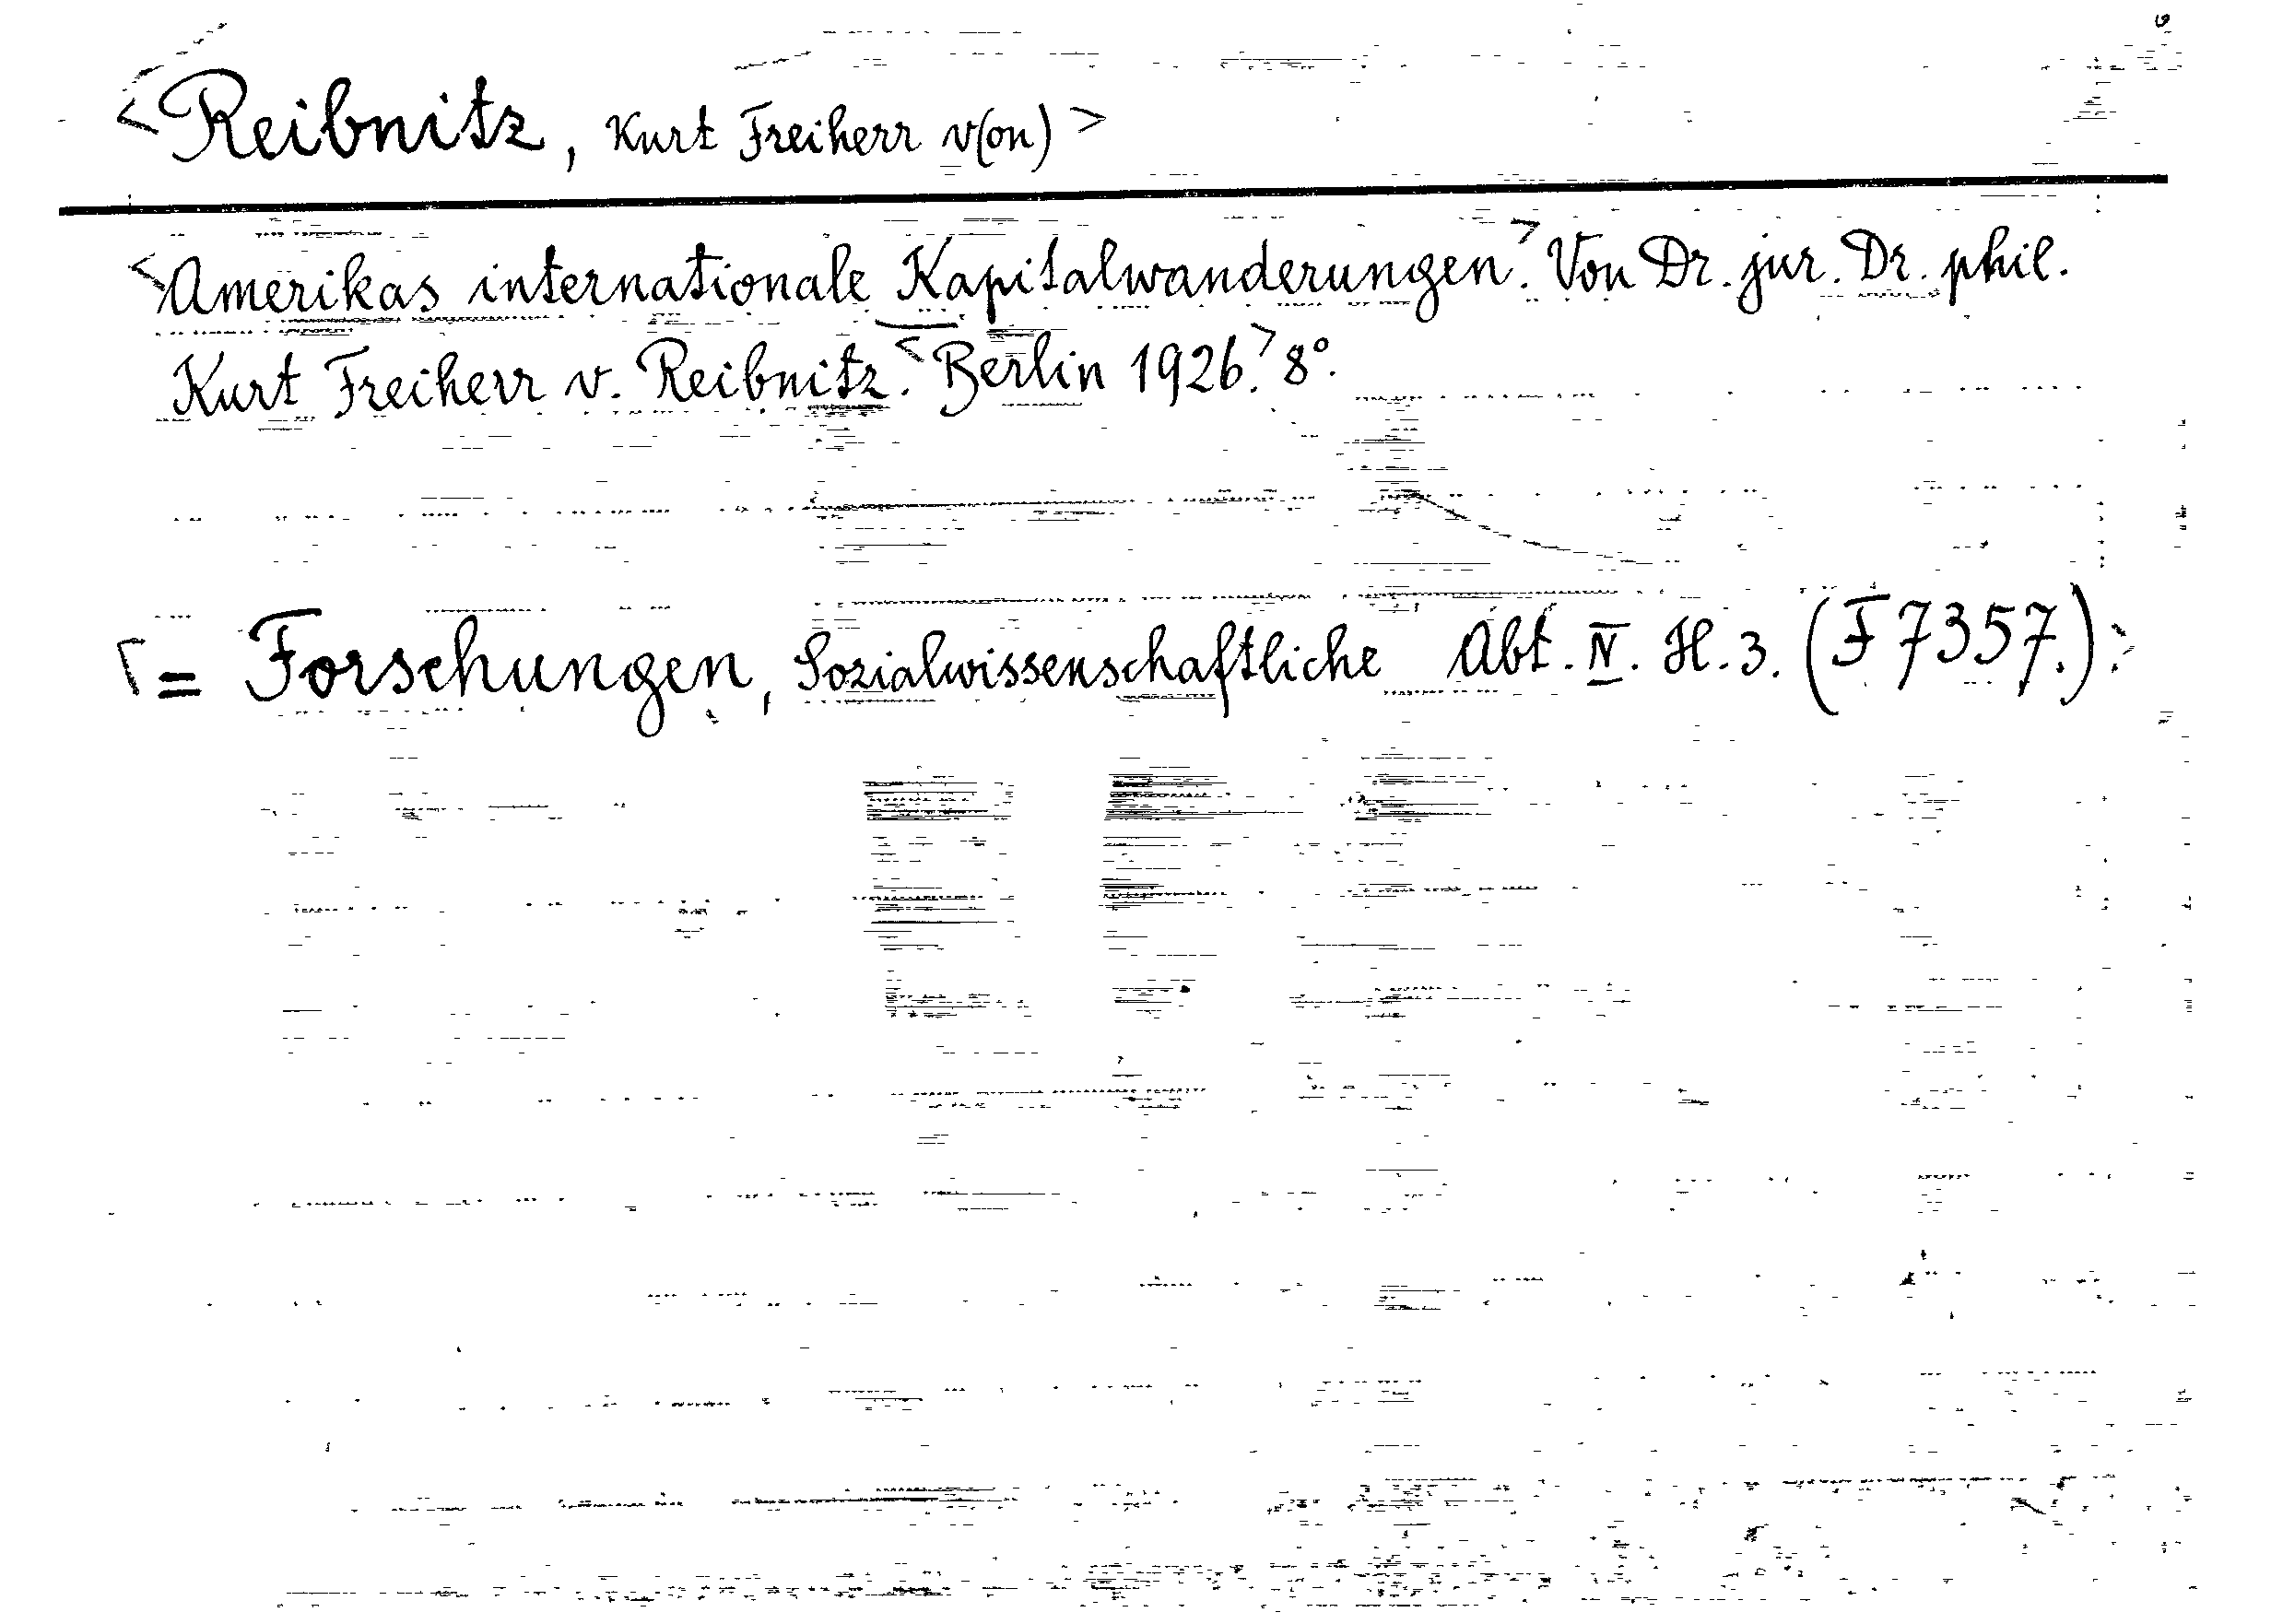 <Reibnitz, Kurt Freiherr v(on)>
<Amerikas internationale Kapitalwanderungen.> Von Dr. jur. Dr. phil.
Kurt Freiherr v. Reibnitz. <Berlin 1926.> 8°.
= Forschungen, Sozialwissenschaftliche Abt. IV. H. 3. (F 7357.)>